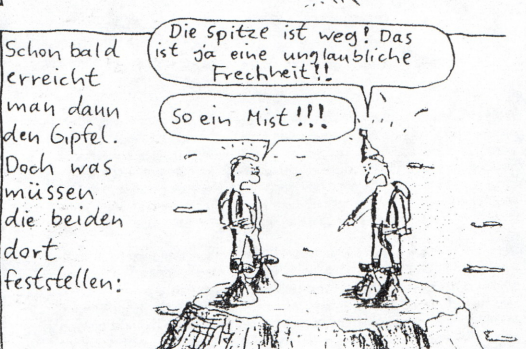 Schon bald
erreicht
man dann
den Gipfel.
Doch was
müssen
die beiden
dort
feststellen:
Die Spitze ist weg! Das
ist ja eine unglaubliche
Frechheit!!
So ein Mist!!!